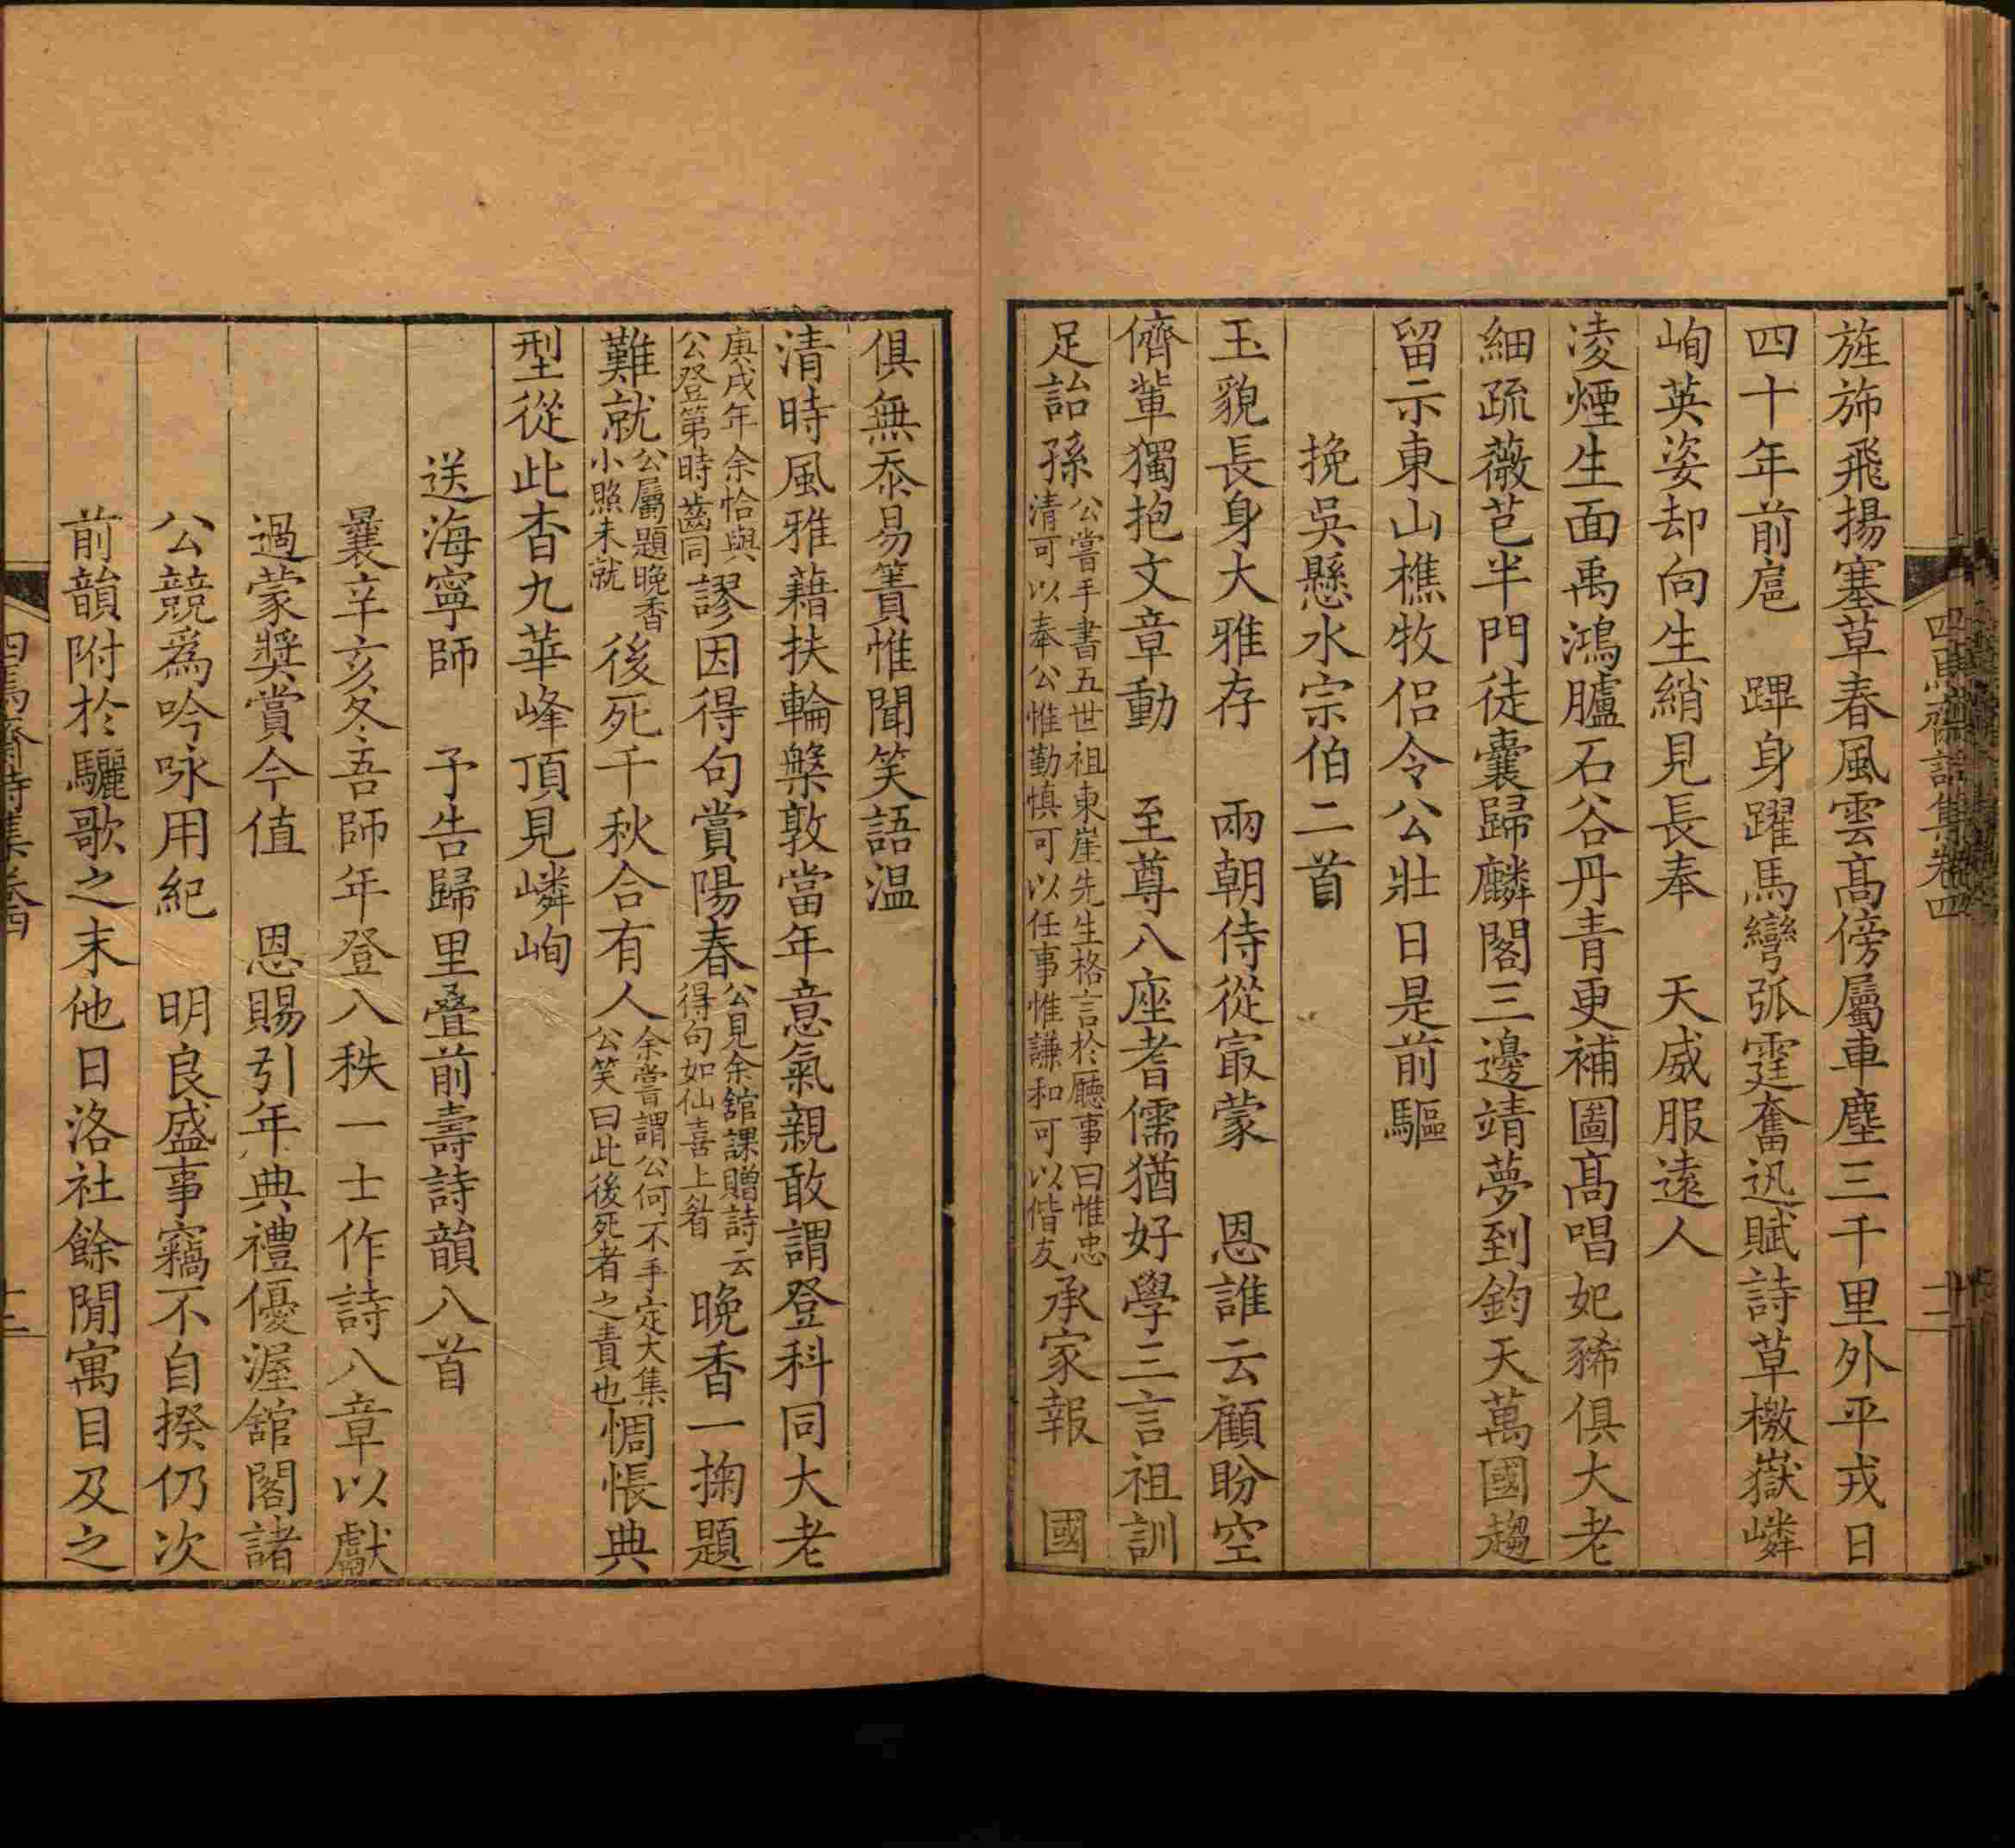 旌斾飛揚塞草春風雲高傍屬車塵三千里外平戎日
四十年前扈　蹕身躍馬彎弧霆奮迅賦詩草檄嶽嶙
峋英姿却向生綃見長奉　天威服遠人
凌煙生面禹鴻臚石谷丹青更補圖高唱妃豨俱大老
細疏薇芑半門徒囊歸麟閣三邊靖夢到鈞天萬國趨
留示東山樵牧侶令公壯日是前驅
挽吳懸水宗伯二首
玉貌長身大雅存　兩朝侍從寂蒙　恩誰云顧盼空
儕輩獨抱文章動　至尊八座耆儒猶好學三言祖訓
足詒孫公嘗手書五世祖東崖先生格言於廳事曰惟忠清可以奉公惟勤慎可以任事惟謙和可以偕友承家報　國
俱無忝易簀惟聞笑語温
清時風雅藉扶輪槃敦當年意氣親敢謂登科同大老
庚戌年余恰與公登第時齒同謬因得句賞陽春公見余舘課贈詩云得句如仙喜上眉晚香一掬題
難就公屬題晚香小照未就後死千秋合有人余嘗謂公何不手定大集公笑曰此後死者之責也惆悵典
型從此杳九華峰頂見嶙峋
送海寧師　予告歸里疊前壽詩韻八首
曩辛亥冬吾師年登八秩一士作詩八章以獻
過蒙獎賞今值　恩賜引年典禮優渥舘閣諸
公競爲吟咏用紀　明良盛事竊不自揆仍次
前韻附於驪歌之末他日洛社餘閒寓目及之